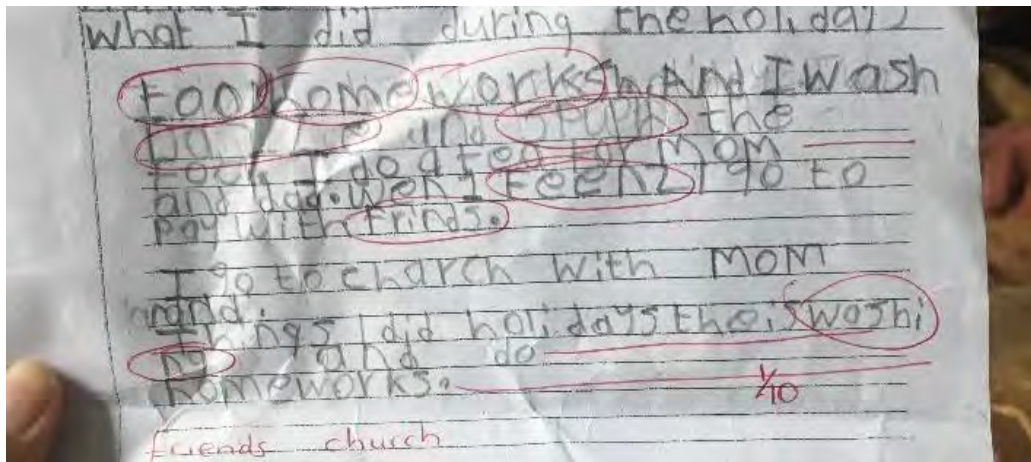 What I did during the holidays
home works. And I wash
and the
I do a tea for MOM
and dad. wen I I go to
Pay with frinds.
I go to charch with MOM
and.
Things I did holidays the is washi
ng and do
homeworks.
1/10
friends church